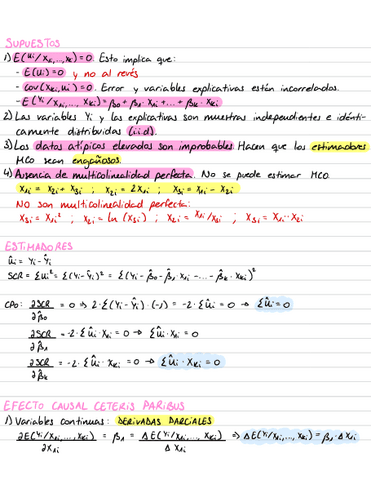 SUPUESTOS
1) E(ui/x1i,...,xk)=0. Esto implica que:
- E(ui)=0 y no al revés
- cov(xKi,ui)=0. Error y variables explicativas están incorreladas.
- E(Yi/x1i,...,xKi)=β0+β1·x1i+...+βK·xKi
2) Las variables Yi y las explicativas son muestras independientes e idénti-
camente distribuidas (i.i.d).
3) Los datos atípicos elevados son improbables. Hacen que los estimadores
MCO sean engañosos.
4) Ausencia de multicolinealidad perfecta. No se puede estimar MCO.
x1i = x2i + x3i ; x2i = 2x1i ; x3i = x1i - x2i
NO son multicolinealidad perfecta:
x3i = x1i² ; x2i = ln(x3i) ; x2i = x1i/x3i ; x3i = x1i·x2i
ESTIMADORES
ûi = Yi - Ŷi
SCR = Σûi² = Σ(Yi-Ŷi)² = Σ(Yi-β̂0-β̂1·x1-...-β̂k·xKi)²
CPO: ∂SCR/∂β̂0 = 0 → 2·Σ(Yi-Ŷi)·(-1) = -2·Σûi = 0 → Σûi = 0
∂SCR/∂β̂1 = -2·Σûi·x1i = 0 → Σûi·x1i = 0
∂SCR/∂β̂k = -2·Σûi·xKi = 0 → Σûi·xKi = 0
EFECTO CAUSAL CETERIS PARIBUS
1) Variables continuas: DERIVADAS PARCIALES
∂E(Yi/x1i,...,xKi)/∂x1i = β1 = ΔE(Yi/x1i,...,xKi)/Δx1i ⇒ ΔE(Yi/x1i,...,xKi) = β1·Δx1i